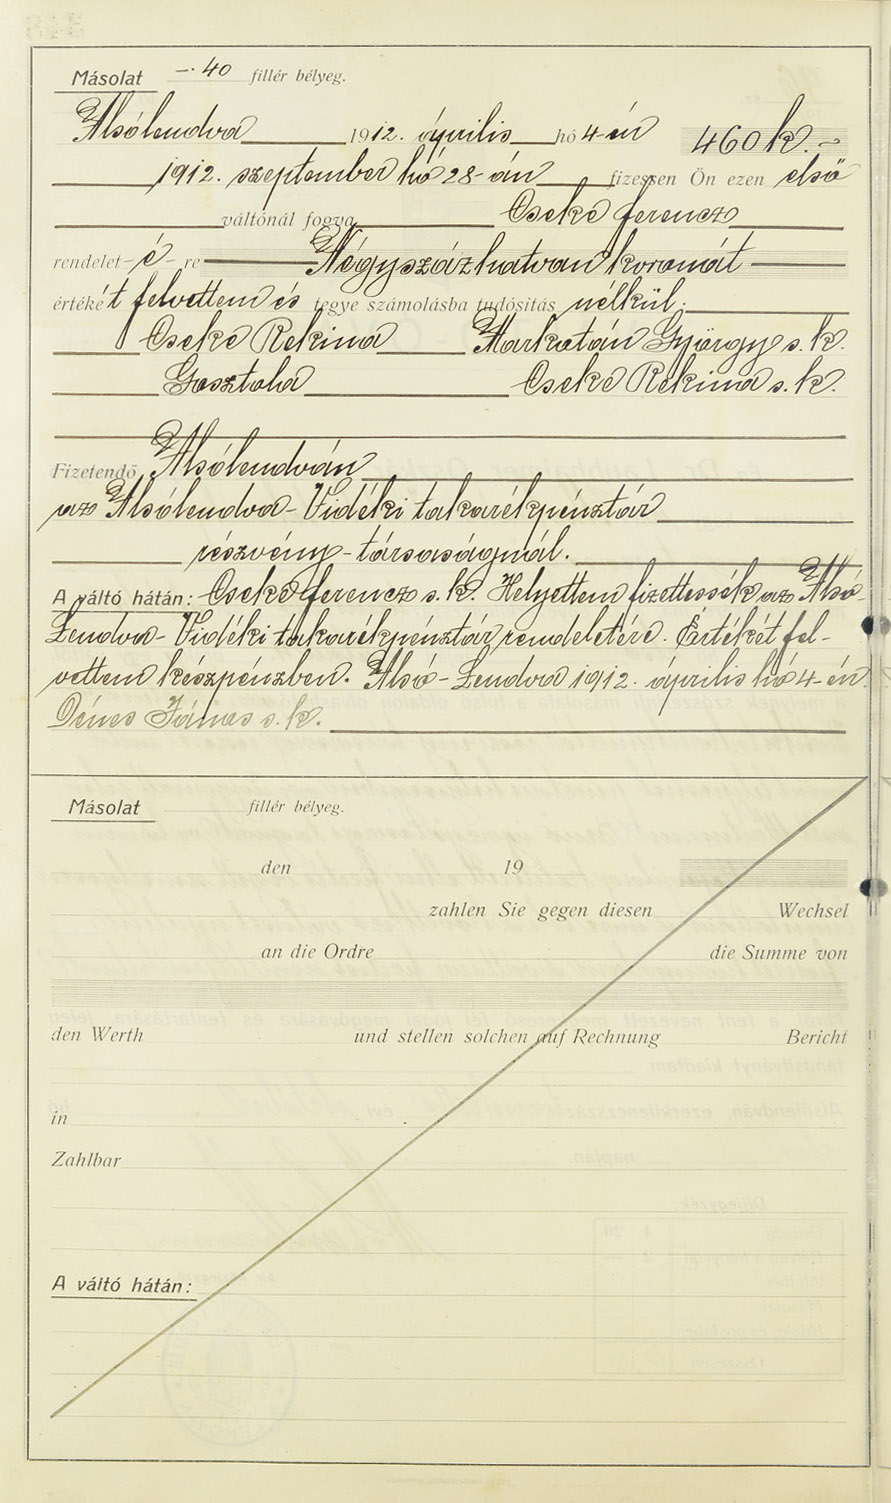 Másolat -.40 fillér bélyeg.
Alsólendva 1912. április hó 4-én 460 k.-
1912. szeptember hó 28-án fizessen Ön ezen első
váltónál fogva Cseke ferencz
rendelet-é-re Négyszázhatvan koronát
értékét felvettem és tegye számolásba tudósitás nélkül.
Cseke Rekina Markotán György s. k.
Gosztola Cseke Rekina s. k.
Fizetendő Alsólendván
az Alsólendva-Vidéki takarékpénztár
részvény-társaságnál.
A váltó hátán: Cseke ferencz s. k. Helyettem fizettessék az Alsó-
Lendva-Vidéki takarékpénztár rendeletére. Értékét fel-
vettem készpénzben. Alsó-Lendva 1912. április hó 4-én.
Dénes János s. k.
Másolat fillér bélyeg.
den 19
zahlen Sie gegen diesen Wechsel
an die Ordre die Summe von
den Werth und stellen solchen auf Rechnung Bericht
in
Zahlbar
A váltó hátán: